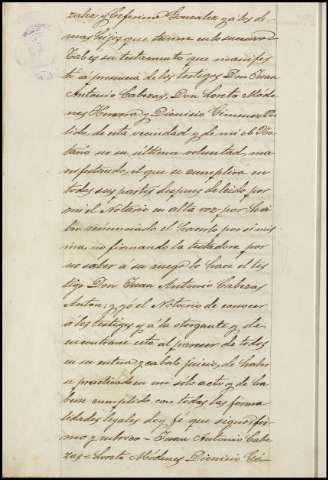 zalez y Ceferina Gonzalez y á los de-
mas hijos que tuviere en lo sucesivo.
Tal es su testamento que manifies-
ta á presencia de los testigos Don Juan
Antonio Cabezas, Don Loreto Móde-
nes Herrera y Dionisio Gimenez
de esta vecindad y de mi el No-
tario ser su última voluntad, ma-
nifestando, el que se cumplirá en
todas sus partes despues de leido por
mi el Notario en alta voz por há-
ber renunciado el hacerlo por si mis-
ma, no firmando la testadora por
no saber á su ruego lo hace el tes-
tigo Don Juan Antonio Cabezas
Anton; y yo el Notario de conocer
á los testigos y á la otorgante y de
encontrarse esta al parecer de todos
en su entero y cabal juicio, de haber-
se practicado en un sólo acto y de ha-
berse cumplido con todas las forma-
lidades legales doy fé que signo fir-
mo y rubrico = Juan Antonio Cabe-
zas = Loreto Módenes Dionisio Gi-